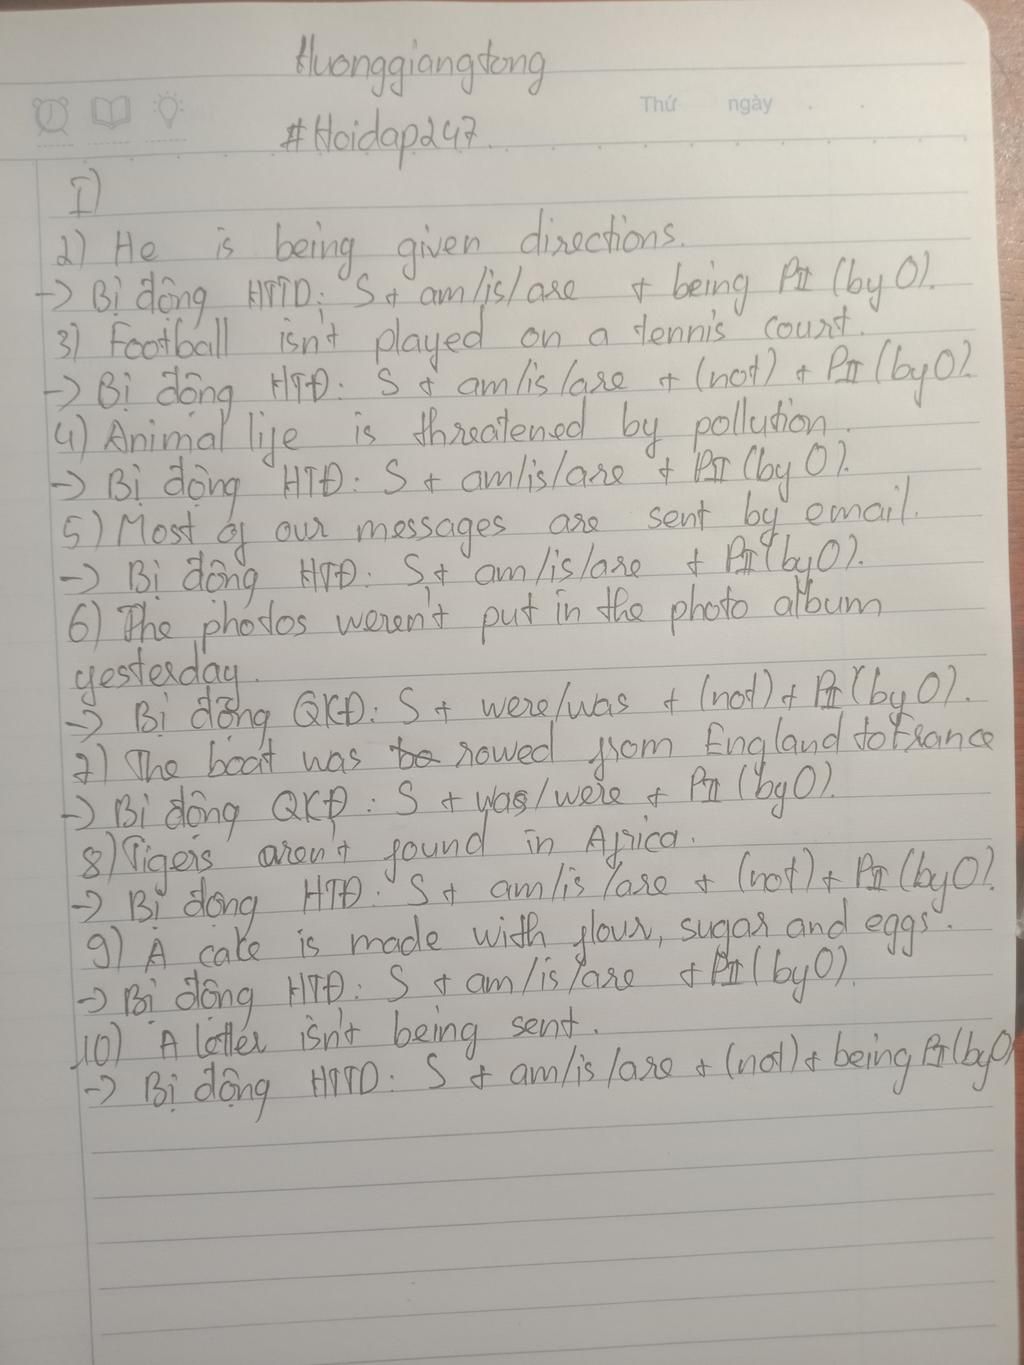 Huonggiangtong
Thứ ngày
#Hoidap247.
I)
2) He is being given directions.
-> Bị động HTTD: S + am/is/are + being PII (by O).
3) Football isn't played on a tennis court.
-> Bị động HTĐ: S + am/is/are + (not) + PII (by O).
4) Animal life is threatened by pollution.
-> Bị động HTĐ: S + am/is/are + PII (by O).
5) Most of our messages are sent by email.
-> Bị động HTĐ: S + am/is/are + PII (by O).
6) The photos weren't put in the photo album
yesterday.
-> Bị động QKĐ: S + were/was + (not) + PII (by O).
7) The boat was rowed from England to France
-> Bị động QKĐ: S + was/were + PII (by O).
8) Tigers aren't found in Africa.
-> Bị động HTĐ: S + am/is/are + (not) + PII (by O).
9) A cake is made with flour, sugar and eggs.
-> Bị động HTĐ: S + am/is/are + PII (by O).
10) A letter isn't being sent.
-> Bị động HTTD: S + am/is/are + (not) + being PII (by O)